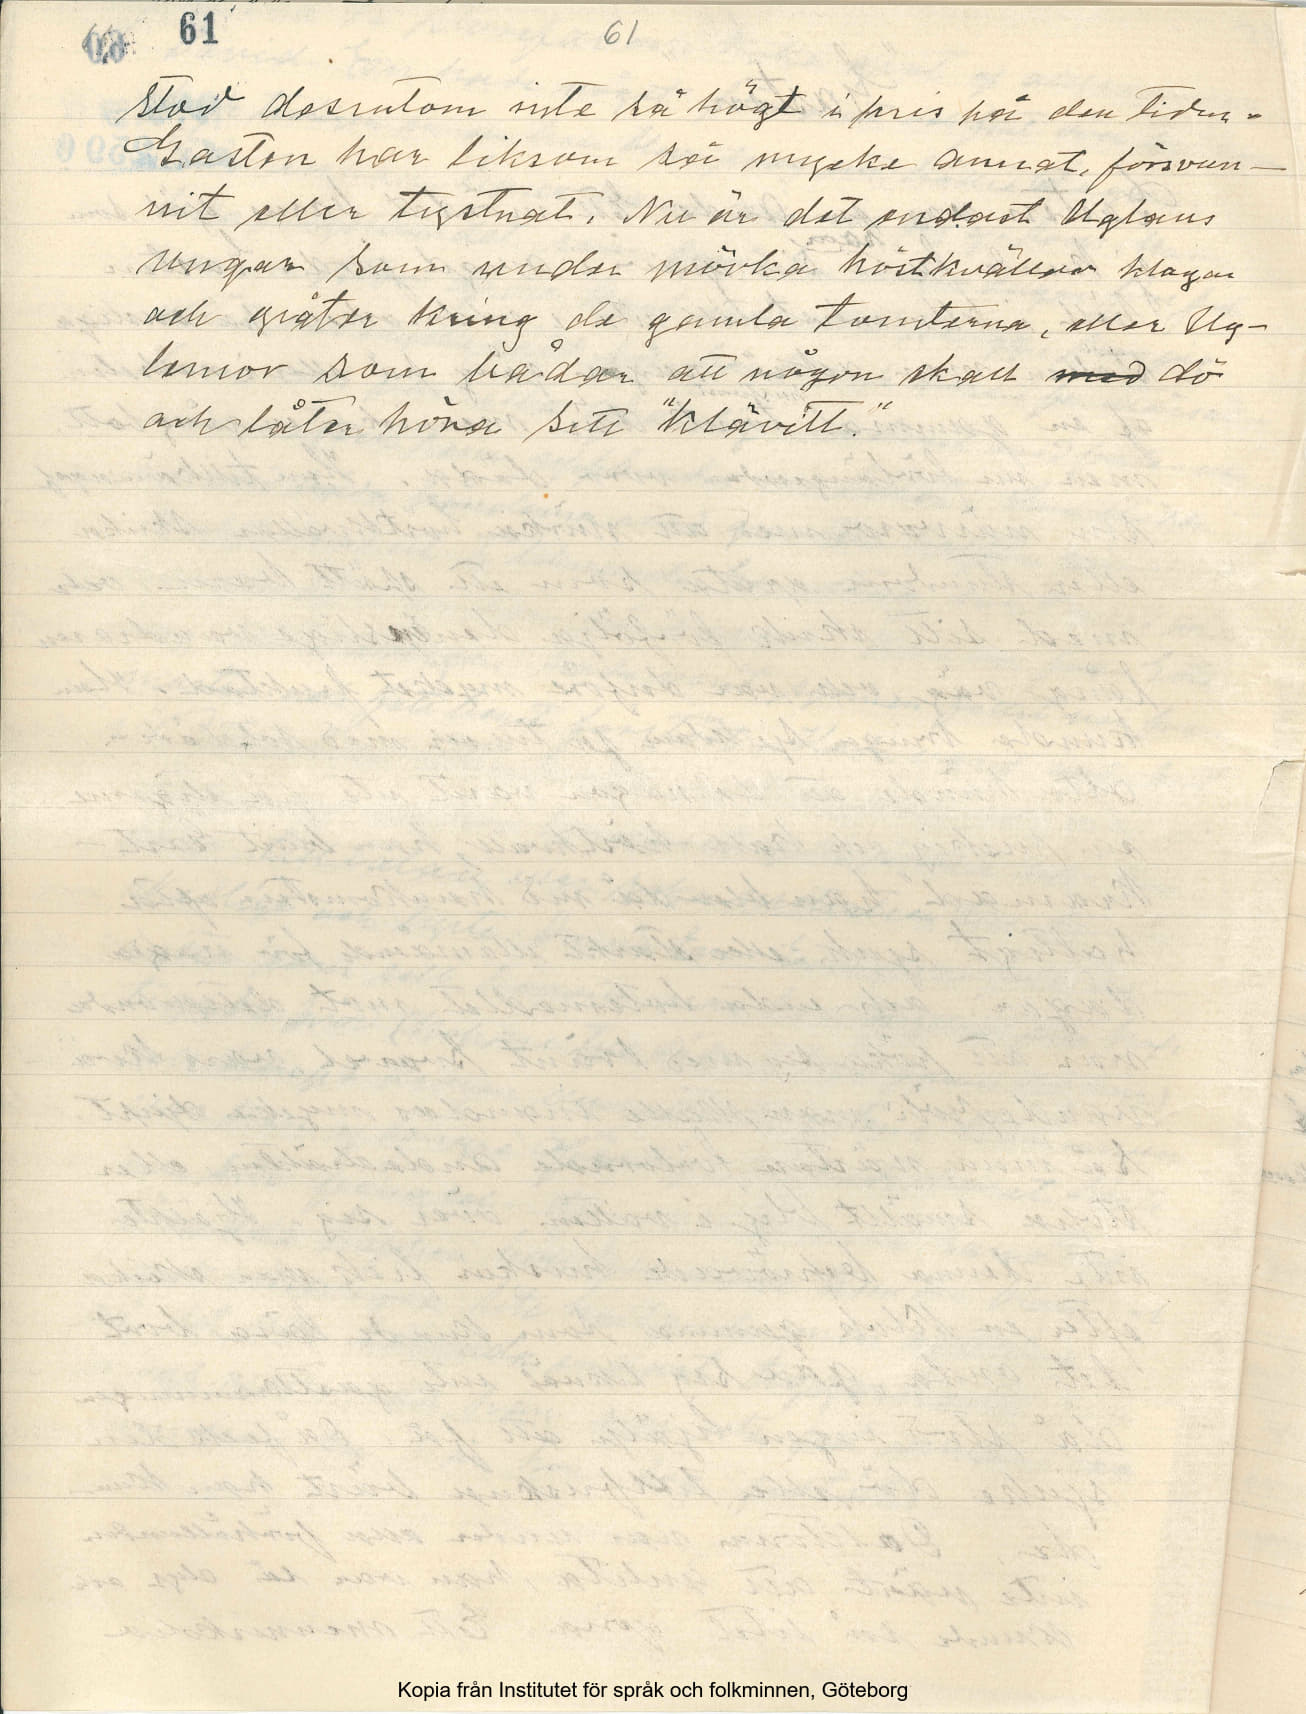 61
61
stod dessutom inte så högt i pris på den tiden.
Gasten har liksom så mycke annat, försvun-
nit eller tystnat. Nu är det endast Uglans
ungar som under mörka höstkvällar klagar
och gråter kring de gamla tomterna, eller Ug-
lemor som bådar att någon skall med dö
och låter höra sitt "Klävitt."
Kopia från Institutet för språk och folkminnen, Göteborg